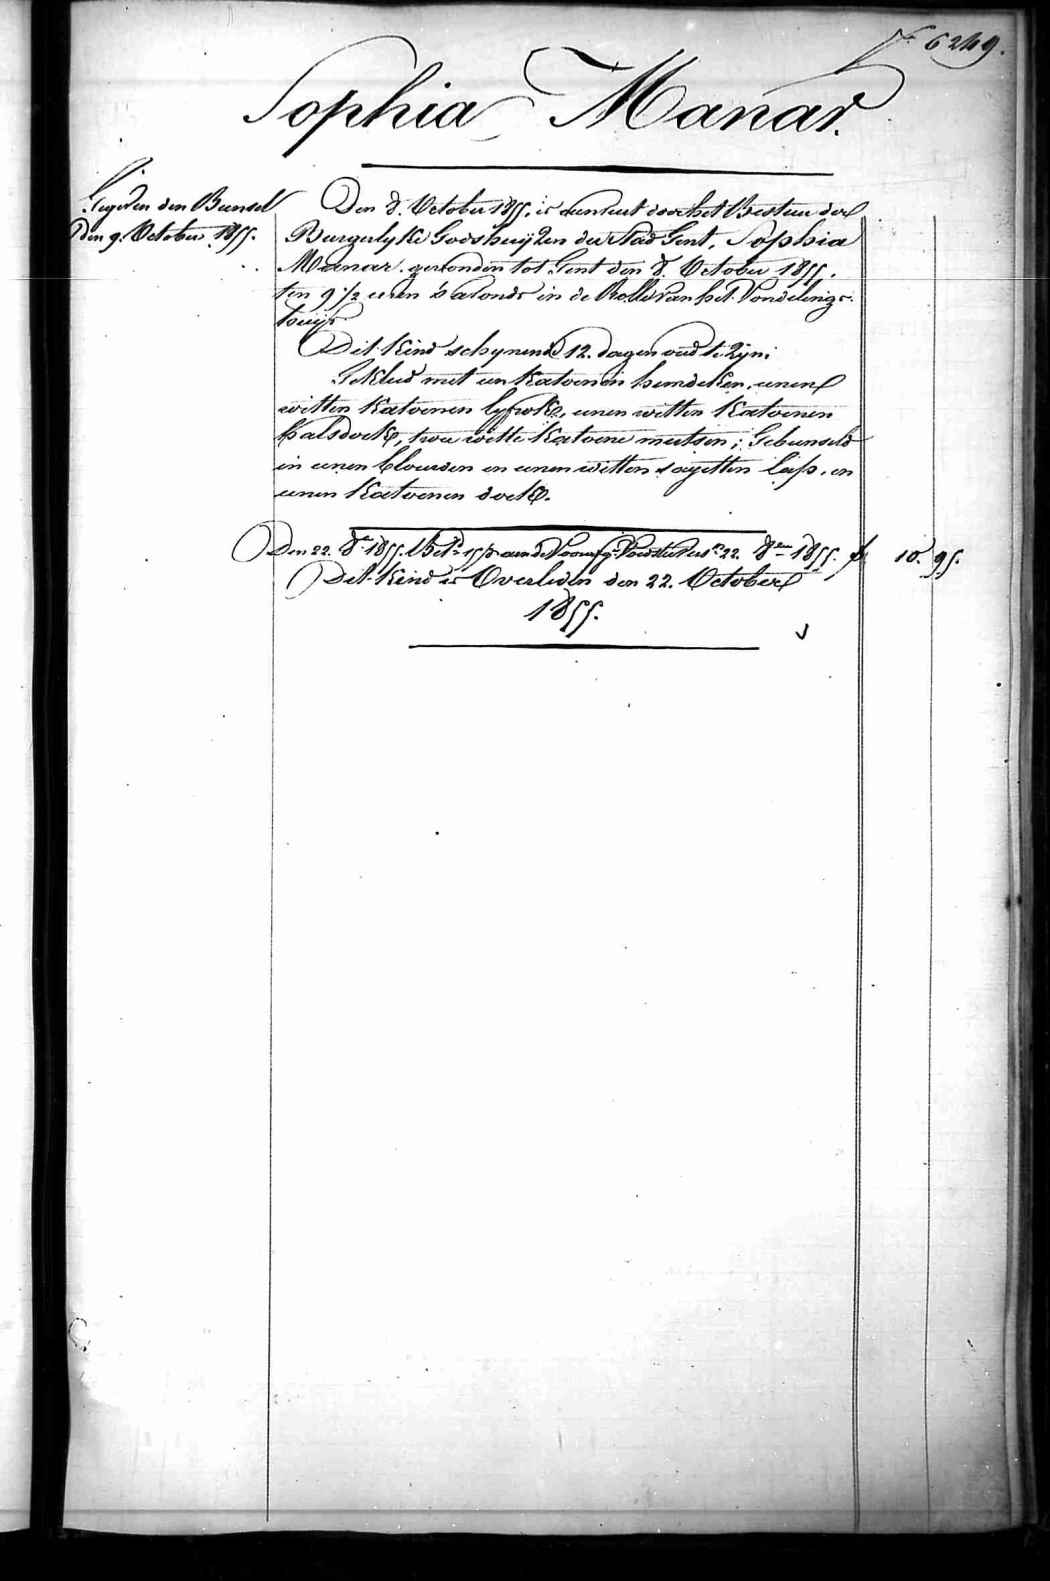 N.º 6249.
Sophia Manar.
Gegeven den Bunsel
Den 9. October 1855.
Den 8. October 1855. is aenveert door het Bestuer der
Burgerlyke Godshuijzen der Stad Gent, Sophia
Manar. gevonden tot Gent den 8. October 1855.
ten 9 1/2 uren 's avonds in de Rolle van het Vondelings-
huijs
Dit Kind schynende 12. dagen oud te Zyn;
Gekleed met een Katoenen hemdeken, eenen
witten Katoenen lyfrok, eenen witten Katoenen
halsdoek, twee witte Katoene mutsen; Gebunseld
in eenen blauwen en eenen witten sayetten laps, en
eenen Katoenen doek.
Den 22. 8.re 1855. aen de 22. 8.bre 1855. f 10. 95.
Dit Kind is Overleden den 22. October
1855.